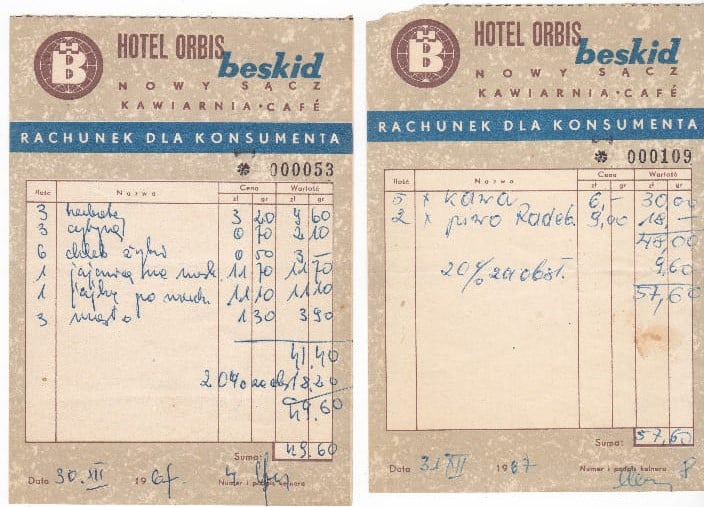 HOTEL ORBIS
beskid
NOWY SĄCZ
KAWIARNIA • CAFÉ
RACHUNEK DLA KONSUMENTA
* 000053
Ilość Nazwa Cena Wartość
zł gr zł gr
3 herbata 3 20 9 60
3 cytryna 0 70 2 10
6 chleb żytni 0 50 3 —
1 jajecznica na maśle 11 70 11 70
1 jajka po wiedeń. 11 10 11 10
3 masło 1 30 3 90
41.40
20% za obsł 8.20
49.60
Suma: 49.60
Data 30.XII 1967 Numer i podpis kelnera
HOTEL ORBIS
beskid
NOWY SĄCZ
KAWIARNIA • CAFÉ
RACHUNEK DLA KONSUMENTA
* 000109
Ilość Nazwa Cena Wartość
zł gr zł gr
5 x kawa 6,- 30,00
2 x piwo Radeb. 9,00 18,—
48,00
20% za obsł. 9,60
57,60
Suma: 57,60
Data 31 XII 1967 Numer i podpis kelnera 8